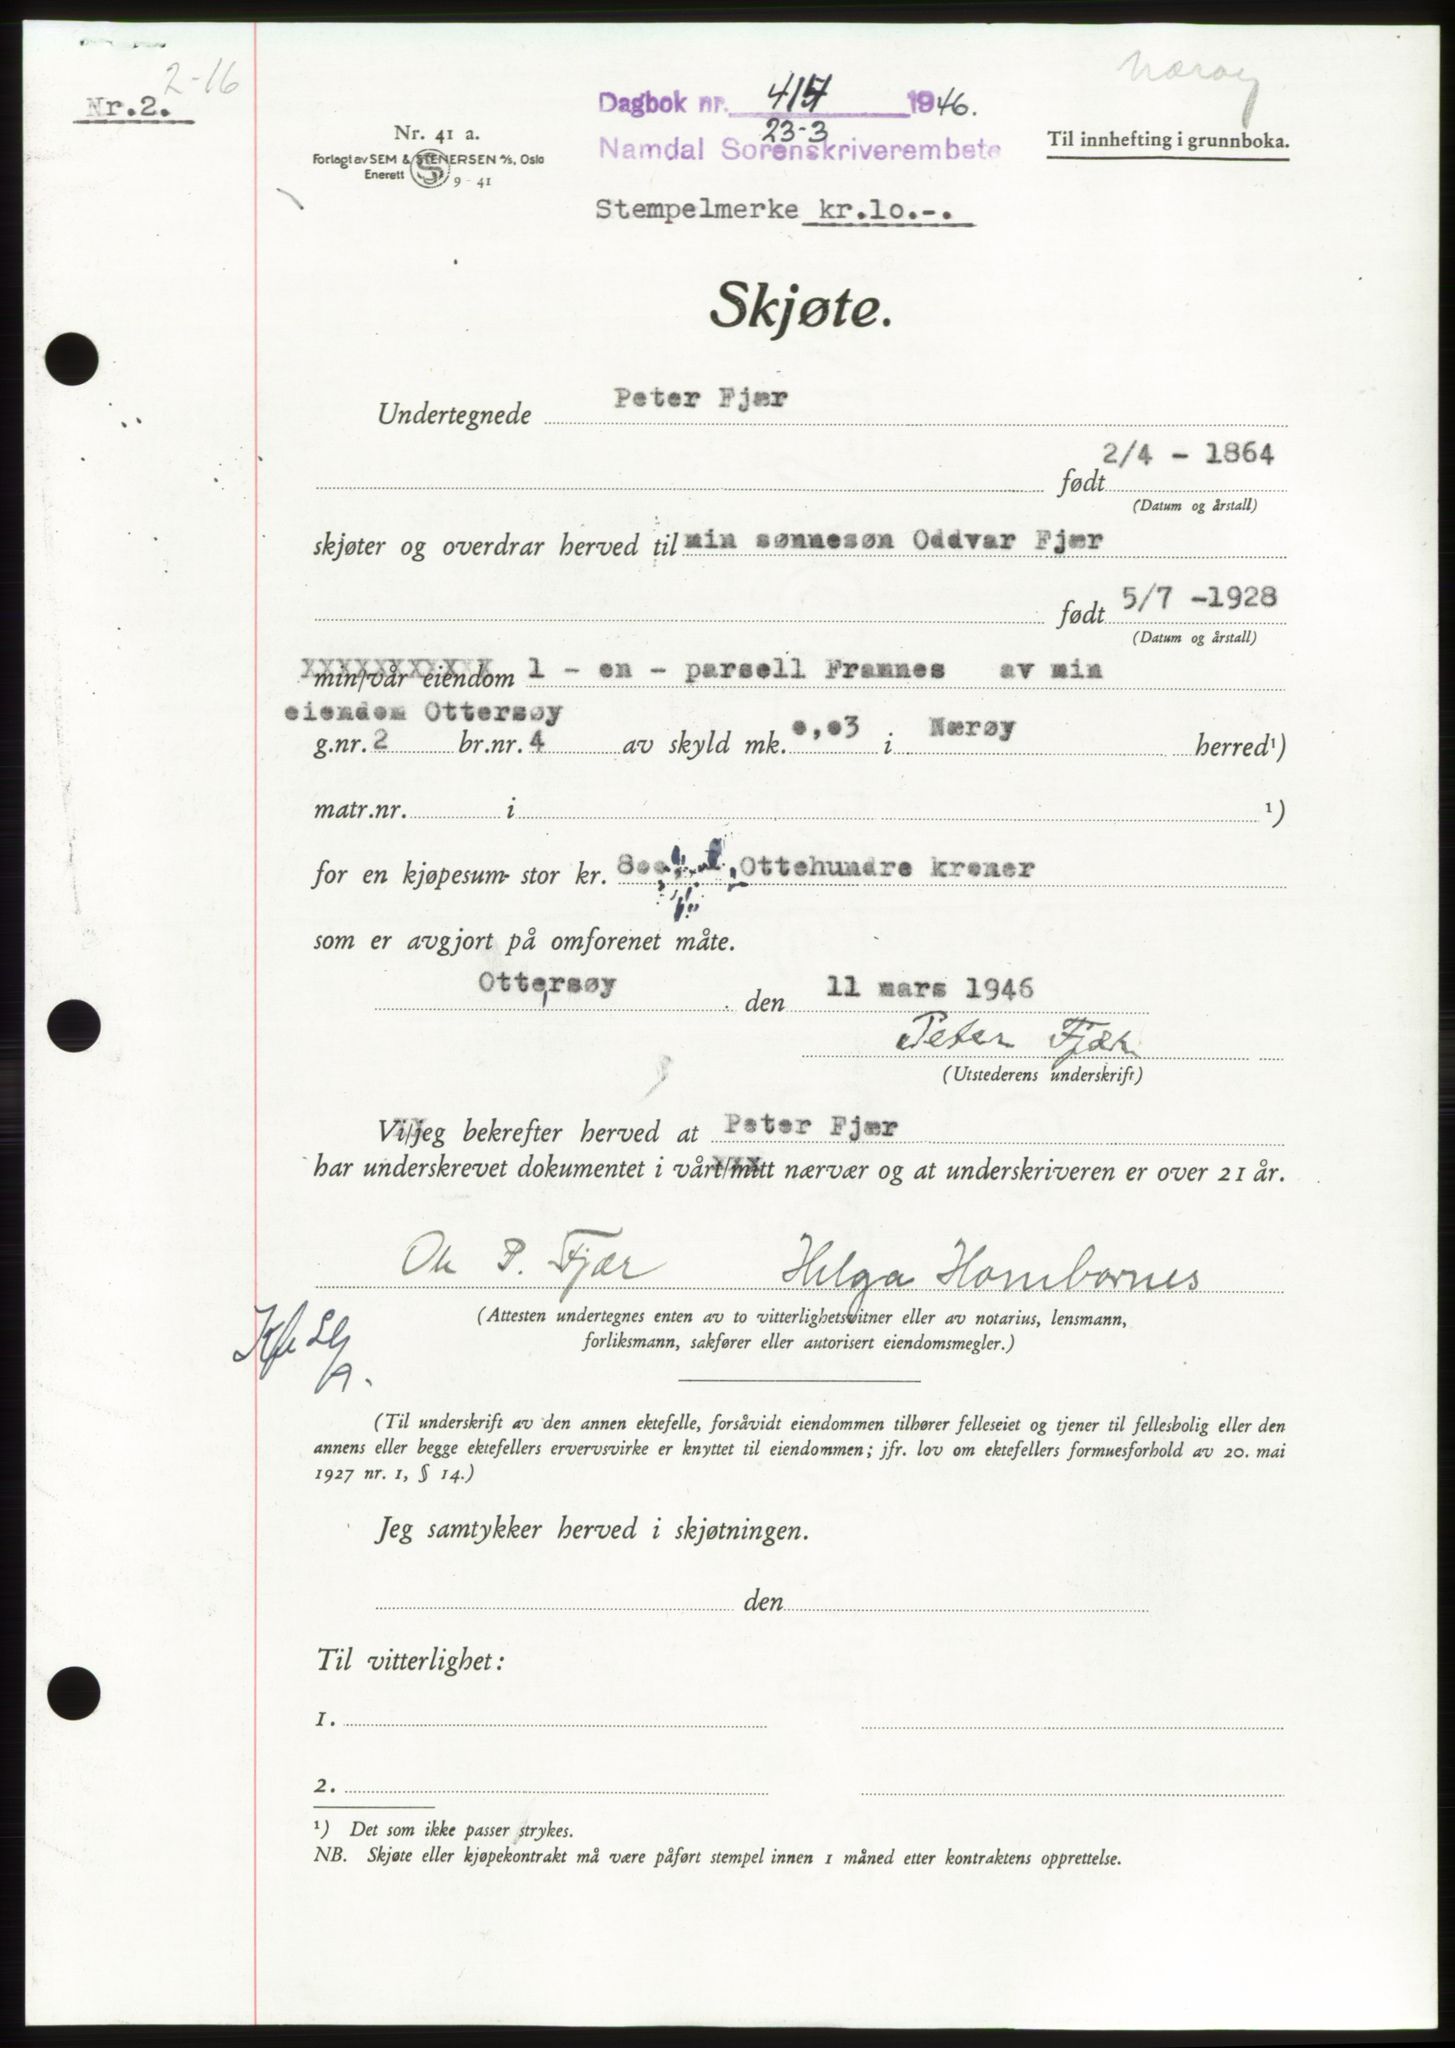 2-16
Nr.2.
Nærøy
Nr. 41 a.
Forlagt av SEM & STENERSEN A/S, Oslo
Enerett 9 - 41
Dagbok nr. 415 1946.
23-3
Namdal Sorenskriverembete
Til innhefting i grunnboka.
Stempelmerke kr.10.-.
Skjøte.
Undertegnede Peter Fjær
født 2/4 - 1864
(Datum og årstall)
skjøter og overdrar herved til min sønnesøn Oddvar Fjær
født 5/7 -1928
(Datum og årstall)
min/vår eiendom 1 - en - parsell Framnes av min
eiendom Ottersøy
g.nr. 2 br.nr. 4 av skyld mk. o,o3 i Nærøy herred¹)
matr.nr. i ¹)
for en kjøpesum stor kr. 8oo Ottehundre kroner
som er avgjort på omforenet måte.
Ottersøy den 11 mars 1946
Peter Fjær
(Utstederens underskrift)
Vi/jeg bekrefter herved at Peter Fjær
har underskrevet dokumentet i vårt/mitt nærvær og at underskriveren er over 21 år.
Ole P. Fjær Helga Hombornes
(Attesten undertegnes enten av to vitterlighetsvitner eller av notarius, lensmann,
forliksmann, sakfører eller autorisert eiendomsmegler.)
(Til underskrift av den annen ektefelle, forsåvidt eiendommen tilhører felleseiet og tjener til fellesbolig eller den
annens eller begge ektefellers ervervsvirke er knyttet til eiendommen; jfr. lov om ektefellers formuesforhold av 20. mai
1927 nr. 1, § 14.)
Jeg samtykker herved i skjøtningen.
den
Til vitterlighet:
1.
2.
¹) Det som ikke passer strykes.
NB. Skjøte eller kjøpekontrakt må være påført stempel innen 1 måned etter kontraktens opprettelse.